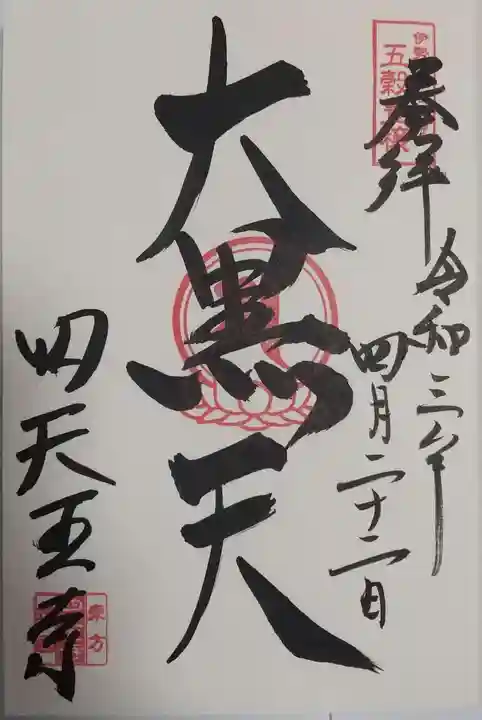 奉拝
令和三年
四月二十二日
大黒天
四天王寺
伊勢
五穀
東方